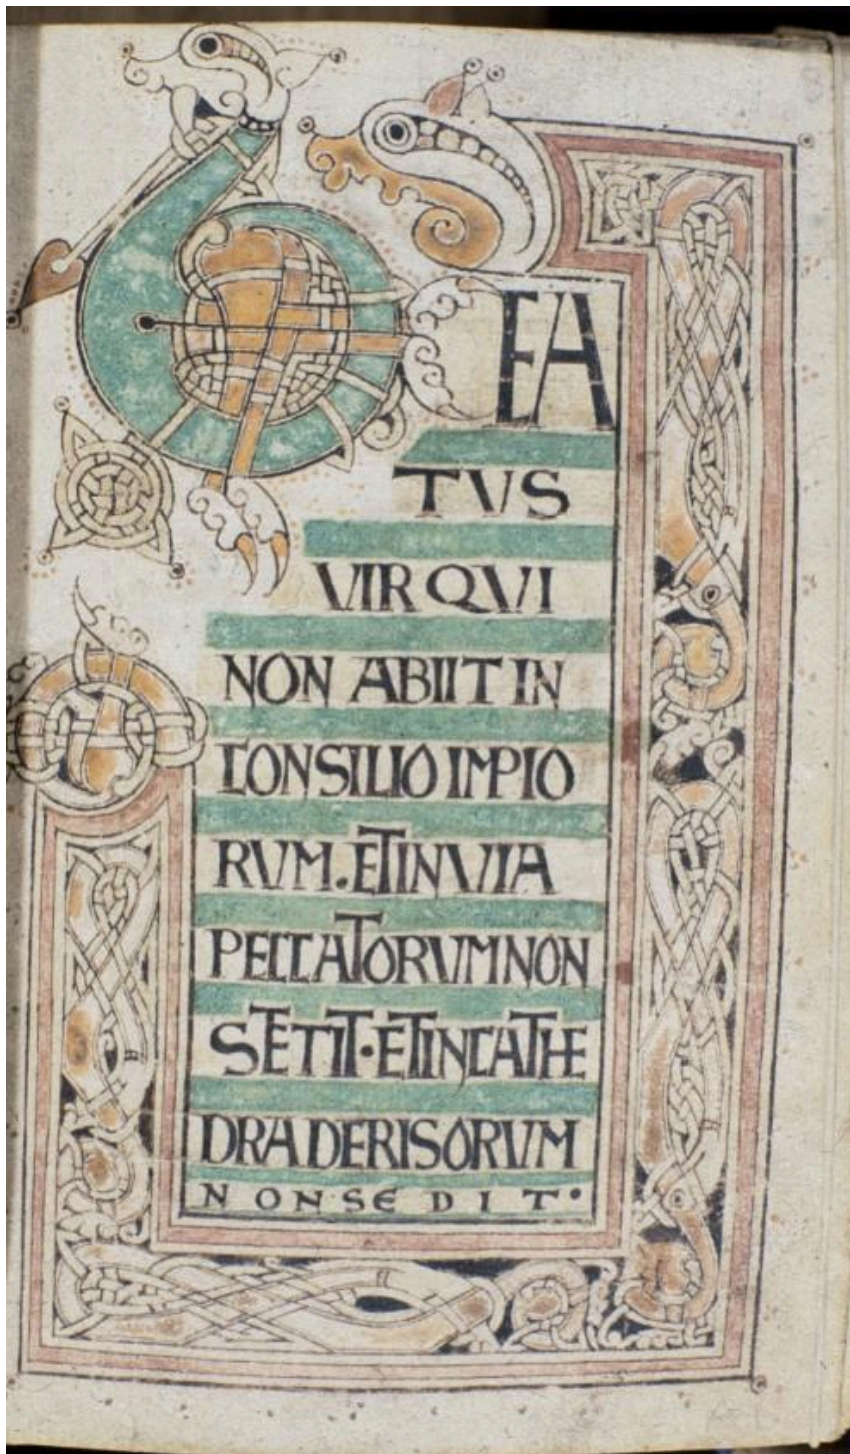 BEA
TVS
VIR QVI
NON ABIIT IN
CONSILIO IMPIO
RVM. ET IN VIA
PECCATORVM NON
STETIT· ET IN CATHE
DRA DERISORVM
NON SEDIT·